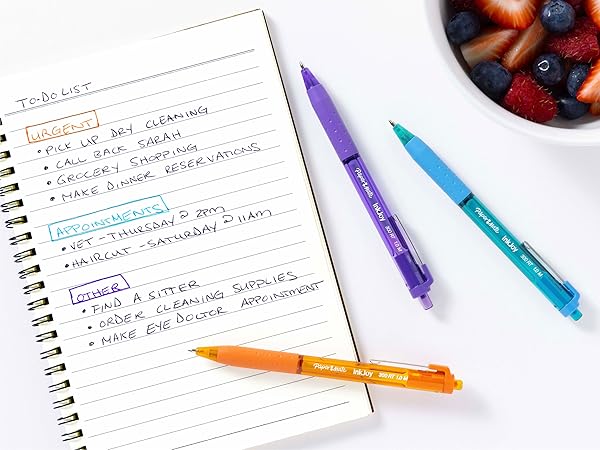 TO-DO LIST
URGENT
• PICK UP DRY CLEANING
• CALL BACK SARAH
• GROCERY SHOPPING
• MAKE DINNER RESERVATIONS
APPOINTMENTS
• VET - THURSDAY @ 2PM
• HAIRCUT - SATURDAY @ 11AM
OTHER
• FIND A SITTER
• ORDER CLEANING SUPPLIES
• MAKE EYE DOCTOR APPOINTMENT
PaperMate InkJoy 300 RT 1.0 M
PaperMate InkJoy 300 RT 1.0 M
PaperMate InkJoy 300 RT 1.0 M